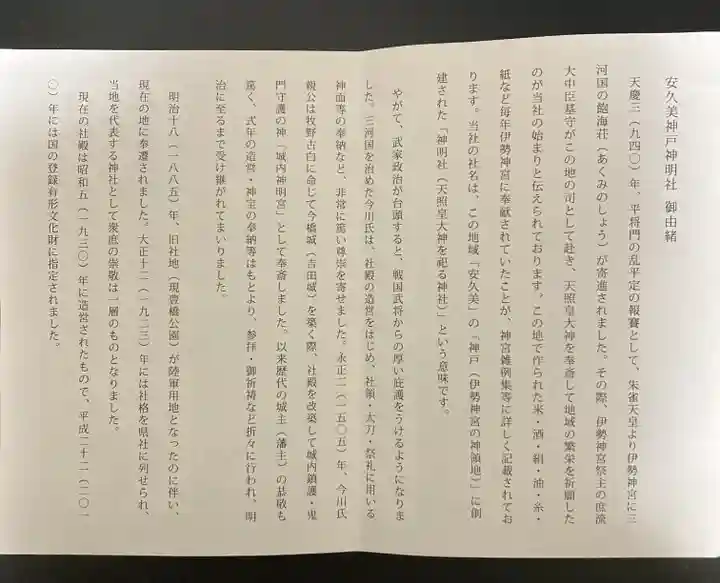 安久美神戸神明社 御由緒
天慶三（九四〇）年、平将門の乱平定の報賽として、朱雀天皇より伊勢神宮に三
河国の飽海荘（あくみのしょう）が寄進されました。その際、伊勢神宮祭主の庶流
大中臣基守がこの地の司として赴き、天照皇大神を奉斎して地域の繁栄を祈願した
のが当社の始まりと伝えられております。この地で作られた米・酒・絹・油・糸・
紙など毎年伊勢神宮に奉献されていたことが、神宮雑例集等に詳しく記載されてお
ります。当社の社名は、この地域「安久美」の「神戸（伊勢神宮の神領地）」に創
建された「神明社（天照皇大神を祀る神社）」という意味です。
やがて、武家政治が台頭すると、戦国武将からの厚い庇護をうけるようになりま
した。三河国を治めた今川氏は、社殿の造営をはじめ、社領・太刀・祭礼に用いる
神面等の奉納など、非常に篤い尊崇を寄せました。永正二（一五〇五）年、今川氏
親公は牧野古白に命じて今橋城（吉田城）を築く際、社殿を改築して城内鎮護・鬼
門守護の神「城内神明宮」として奉斎しました。以来歴代の城主（藩主）の恭敬も
篤く、式年の造営・神宝の奉納等はもとより、参拝・御祈祷など折々に行われ、明
治に至るまで受け継がれてまいりました。
明治十八（一八八五）年、旧社地（現豊橋公園）が陸軍用地となったのに伴い、
現在の地に奉遷されました。大正十二（一九二三）年には社格を県社に列せられ、
当地を代表する神社として衆庶の崇敬は一層のものとなりました。
現在の社殿は昭和五（一九三〇）年に造営されたもので、平成二十二（二〇一
〇）年には国の登録有形文化財に指定されました。